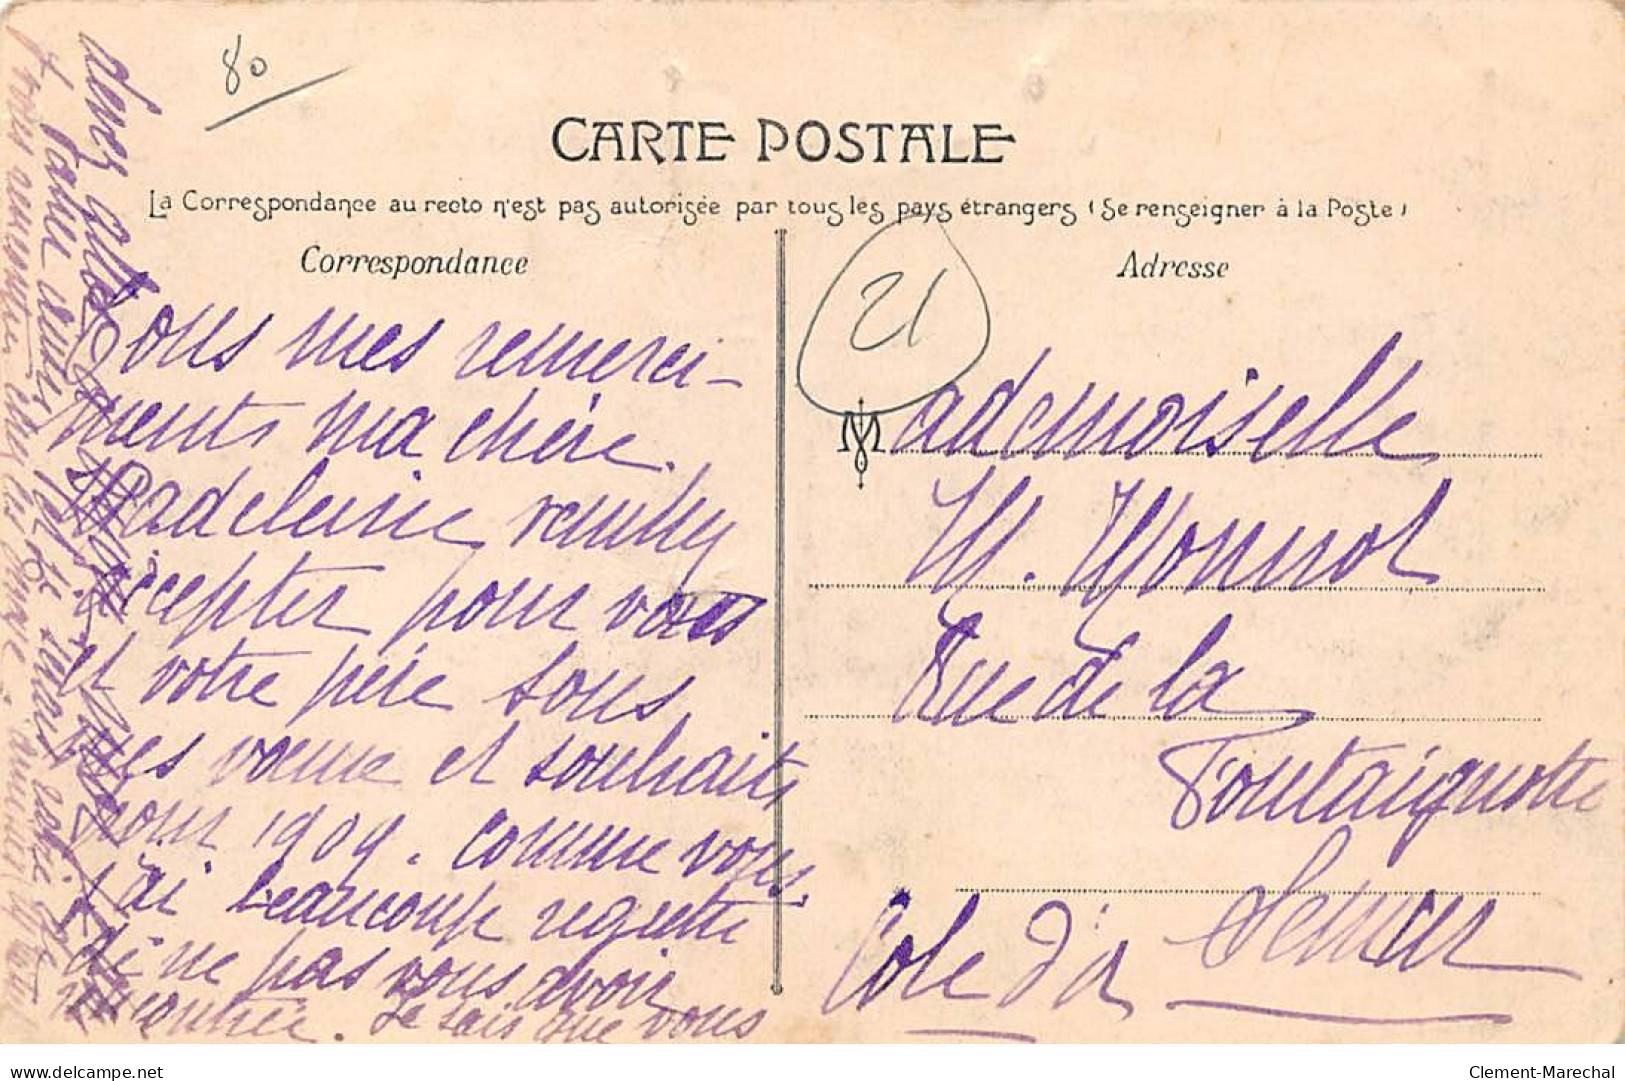 80
CARTE POSTALE
La Correspondance au recto n'est pas autorisée par tous les pays étrangers (Se renseigner à la Poste)
Correspondance
Tous mes remerci-
ments ma chère
Madeleine, veuillez
accepter pour vous
et votre père tous
mes vœux et souhaits
pour 1909. comme vous
j'ai beaucoup regretté
de ne pas vous avoir
rencontrée. Je sais que vous
devez aller
Adresse
21
Mademoiselle
M. Monnot
Rue de la
Fontaignotte
Semur
Côte d'or
delcampe.net
Clement-Marechal